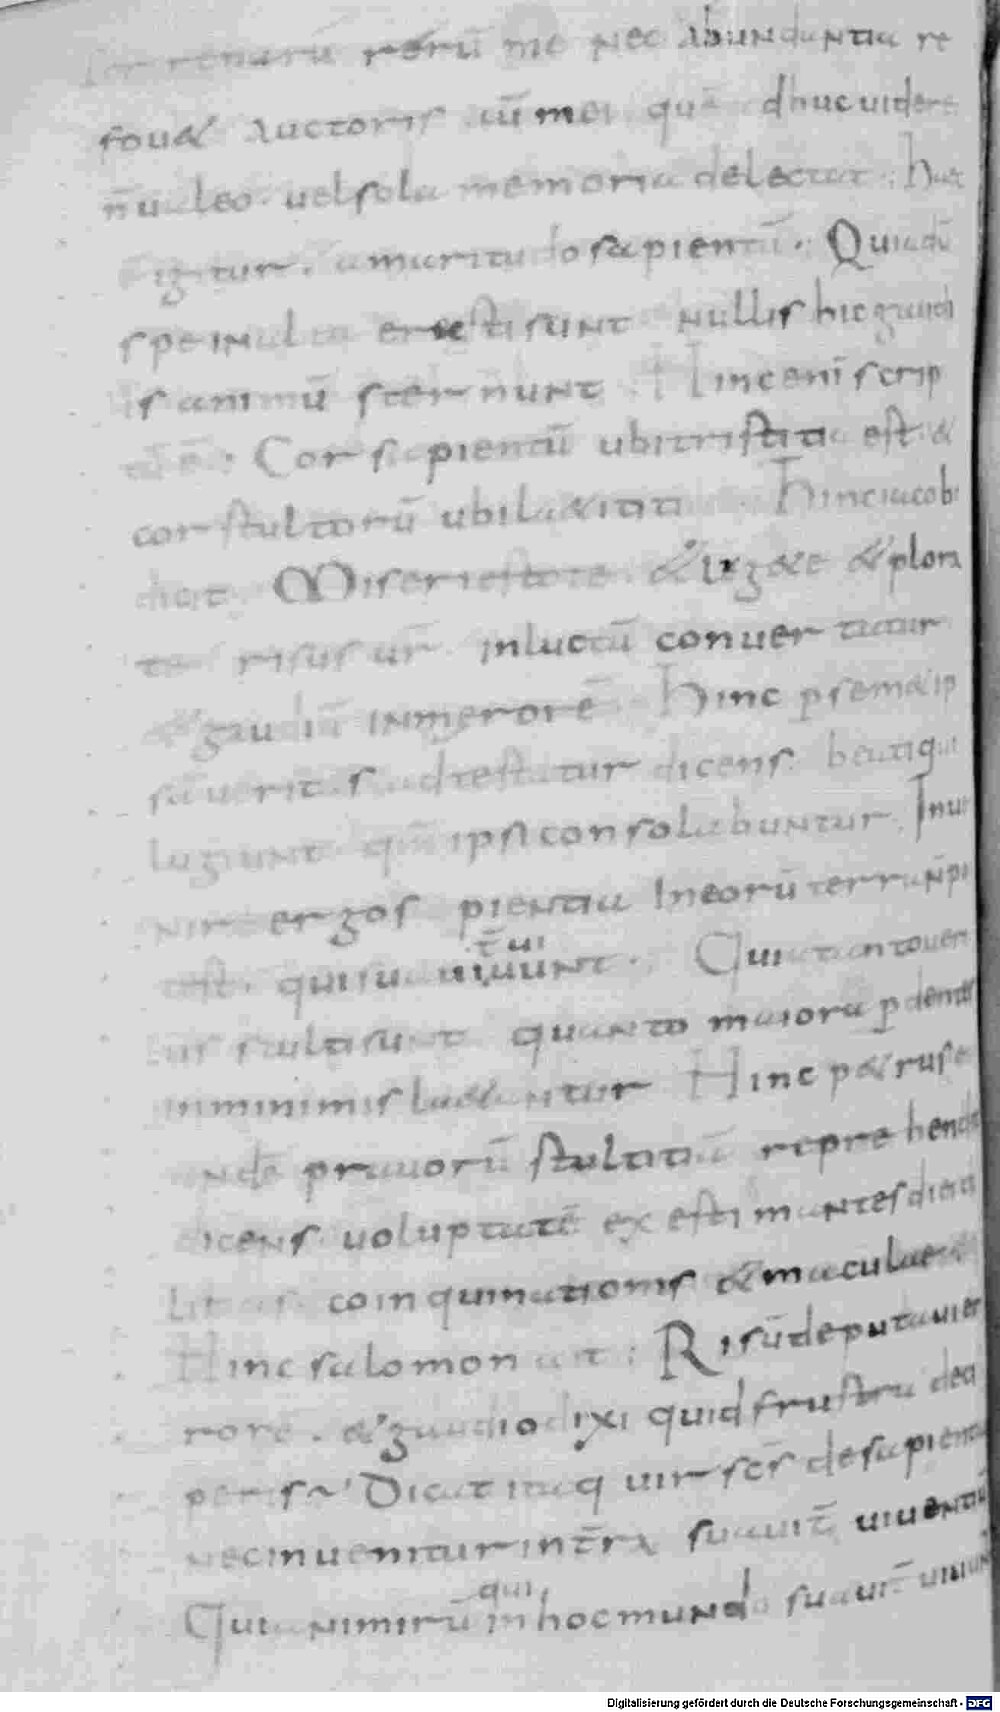 terrenarū rerū me nec abundantia re
fouet auctoris cū mei quē adhuc uidere
n̄ ualeo. uel sola memoria delectat. hac
igitur. amaritudo sapientū. Quia dū
spe in alta erecti sunt nullis hic gaudi
is animū sternunt Hinc enī scrip
tū ē. Cor sapientū ubi tristitia est. &
cor stultorū ubi laetitia. Hinc iacob
dicit. Miseri estote. & lugete & plora
te risus ur̄. in luctū conuertatur
& gaudiū in merorē. Hinc p semetip
sā ueritas adtestatur dicens. beati qui
lugiunt qm̄ ipsi consolabuntur. Inue
nir ergo sapientia In eorū terra n̄ po
test. qui suauit̄ uiuunt. Quia tanto uer
ius stulti sunt quanto maiora pdentes
in minimis laetantur Hinc petrus e
undē prauorū stultitiā reprehendit
dicens. uoluptatē existimantes diei de
litias. coinquinationis & maculae.
Hinc salomon ait. Risū deputaui er
rorē. & gaudio dixi quid frustra deci
peris. Dicat itaq uir scs de sapientia
nec inuenitur in tr̄ra suauit̄ uiuentiū
Quia nimirū qui in hoc mundo suauit̄ uiuun